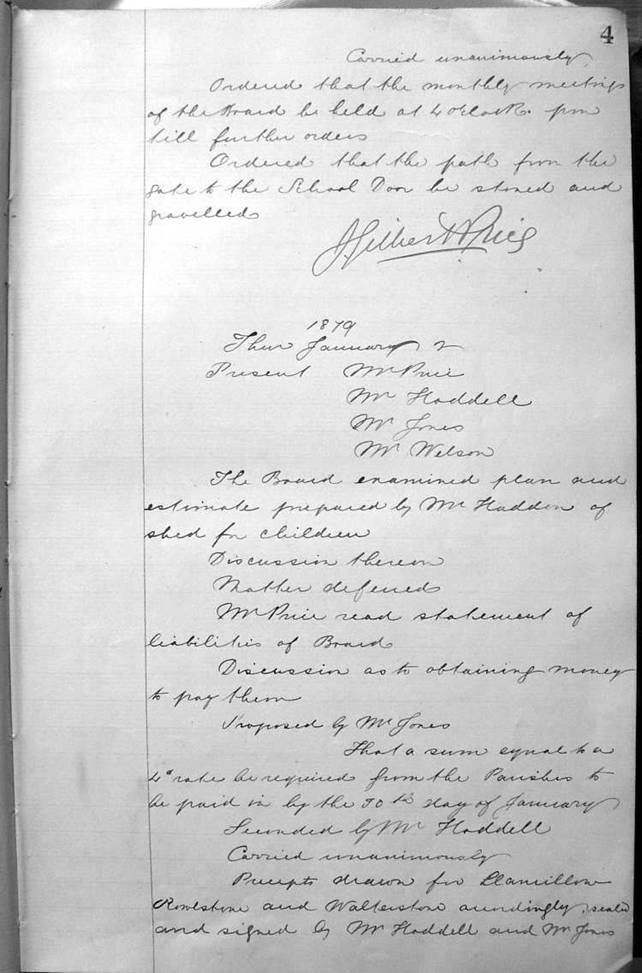 4
Carried unanimously
Ordered that the monthly meetings
of the Board be held at 4 oClock pm
till further orders
Ordered that the path from the
gate to the School Door be stoned and
gravelled
Gilbert H Price
1879
Thur January 2
Present Mr Price
Mr Hoddell
Mr Jones
Mr Welson
The Board examined plan and
estimate prepared by Mr Haddon of
shed for children
Discussion thereon
Matter deferred
Mr Price read statement of
liabilities of Board
Discussion as to obtaining money
to pay them
Proposed by Mr Jones
That a sum equal to a
4d rate be required from the Parishes to
be paid in by the day of January
Seconded by Mr Hoddell
Carried unanimously
Precepts drawn for Llancillow
Rowlstone and Walterstone accordingly, sealed
and signed by Mr Hoddell and Mr Jones